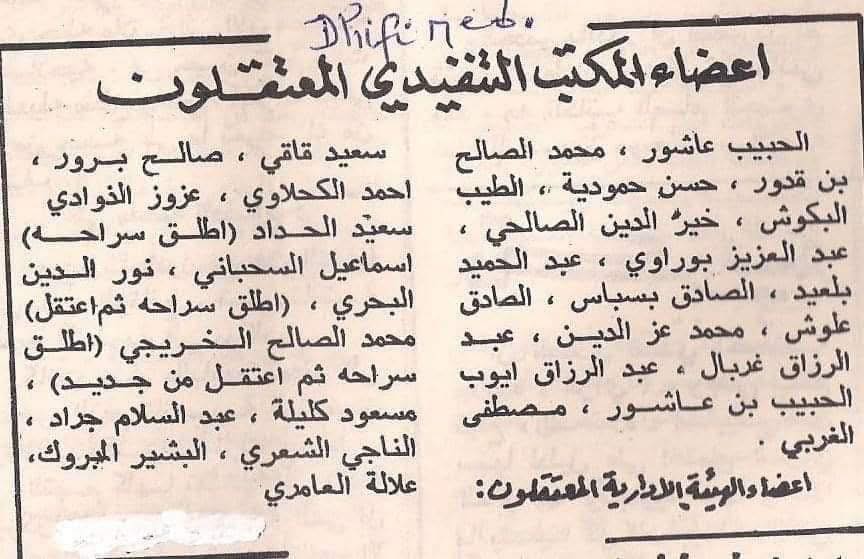 Dhifi Neb.
اعضاء المكتب التنفيذي المعتقلون
الحبيب عاشور ، محمد الصالح
بن قدور ، حسن حمودية ، الطيب
البكوش ، خير الدين الصالحي ،
عبد العزيز بوراوي ، عبد الحميد
بلعيد ، الصادق بسباس ، الصادق
علوش ، محمد عز الدين ، عبد
الرزاق غربال ، عبد الرزاق ايوب
الحبيب بن عاشور ، مصطفى
الغربي .
اعضاء الهيئة الادارية المعتقلون :
سعيد قاقي ، صالح برور ،
احمد الكحلاوي ، عزوز الذوادي
سعيد الحداد (اطلق سراحه)
اسماعيل السحباني ، نور الدين
البحري ، (اطلق سراحه ثم اعتقل)
محمد الصالح الخريجي (اطلق
سراحه ثم اعتقل من جديد) ،
مسعود كليلة ، عبد السلام جراد ،
الناجي الشعري ، البشير المبروك،
علالة العامدي